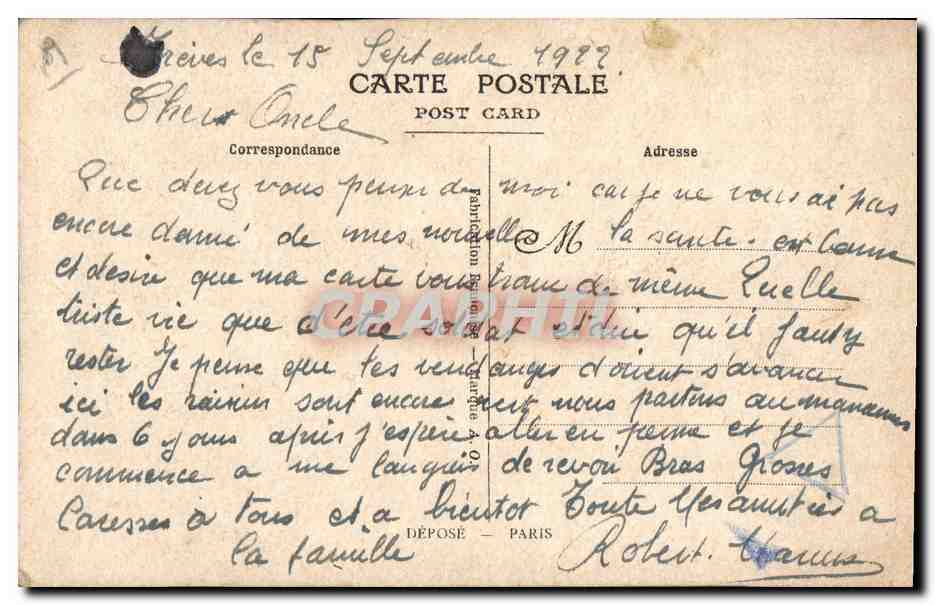 Trèves le 15 Septembre 1922
CARTE POSTALE
POST CARD
Cher Oncle
Correspondance
Adresse
Que devez vous penser de moi car je ne vous ai pas
encore donné de mes nouvelles M la sante est bonne
et désire que ma carte vous trouve de même Quelle
triste vie que d'être soldat et dire qu'il faut y
rester Je pense que les vendanges doivent s'avancer
ici les raisins sont encore vert nous partons au manoeuvres
dans 6 jours après j'espère aller en perme et je
commence a me languir de revoir Bras Grosses
Caresses a tous et a bientot Toute Mes amitiés a
la famille
Robert
Fabrication Française - Marque A. O.
DÉPOSÉ — PARIS
CPAPHIL